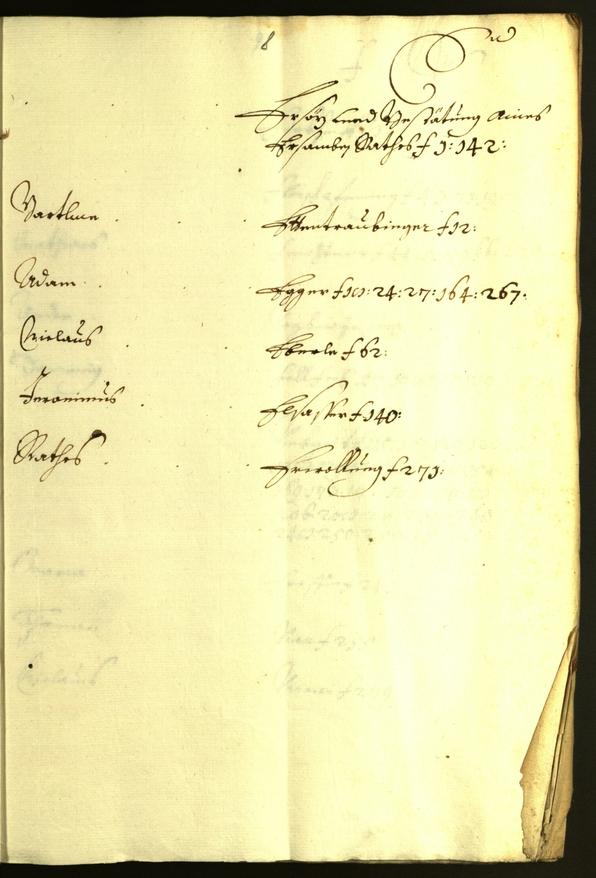 8
E
Ersöz und Bestätung aines
Ersamben Rathes f 1: 142:
Bartlme Ettentraubinger f 12:
Adam Egger f 10: 24: 27: 164: 267.
Niclaus Eberle f 62:
Jeronimus Elsasser f 140:
Rathes Erwollung f 271: